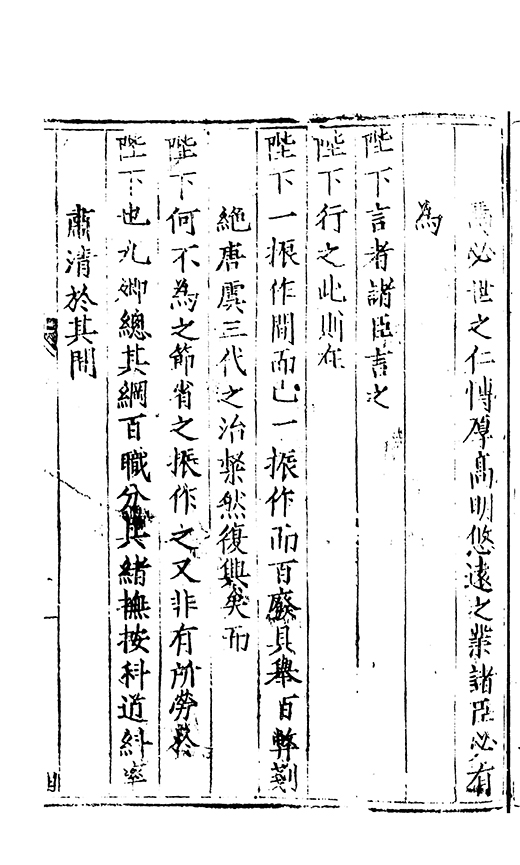 為必世之仁慱厚髙明悠遠之業諸臣必有
為
陛下言者諸臣言之
陛下行之此則在
陛下一振作間而已一振作而百廢具舉百弊剗
絶唐虞三代之治粲然復興矣而
陛下何不為之節省之振作之又非有所勞於
陛下也九卿總其綱百職分其緒撫按科道糾率
肅清於其間